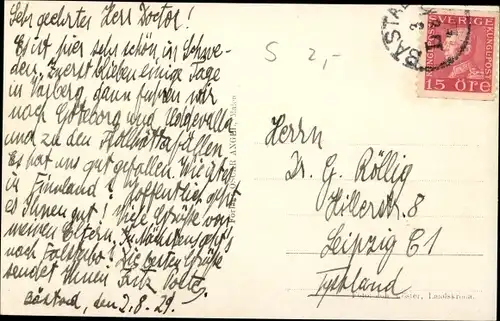 Sehr geehrter Herr Doctor!
Es ist hier sehr schön in Schwe-
den. Zuerst blieben einige Tage
in Varberg, dann fuhren wir
nach Göteborg und Uddevalla
und zu den Trollhättafällen
Es hat uns gut gefallen. Wie ist es
in Finnland? Hoffentlich geht
es Ihnen gut! Viele Grüße von
meinen Eltern. In Nächsten geht's
nach Falsterbo! Die besten Grüße
sendet Ihnen Fritz
Båstad, den 2.8.29.
S 2,-
BÅSTAD
SVERIGE
15 ÖRE
Herrn
Dr. G. Röllig
Hillerstr. 8
Leipzig C1
Tyskland
Landskrona.